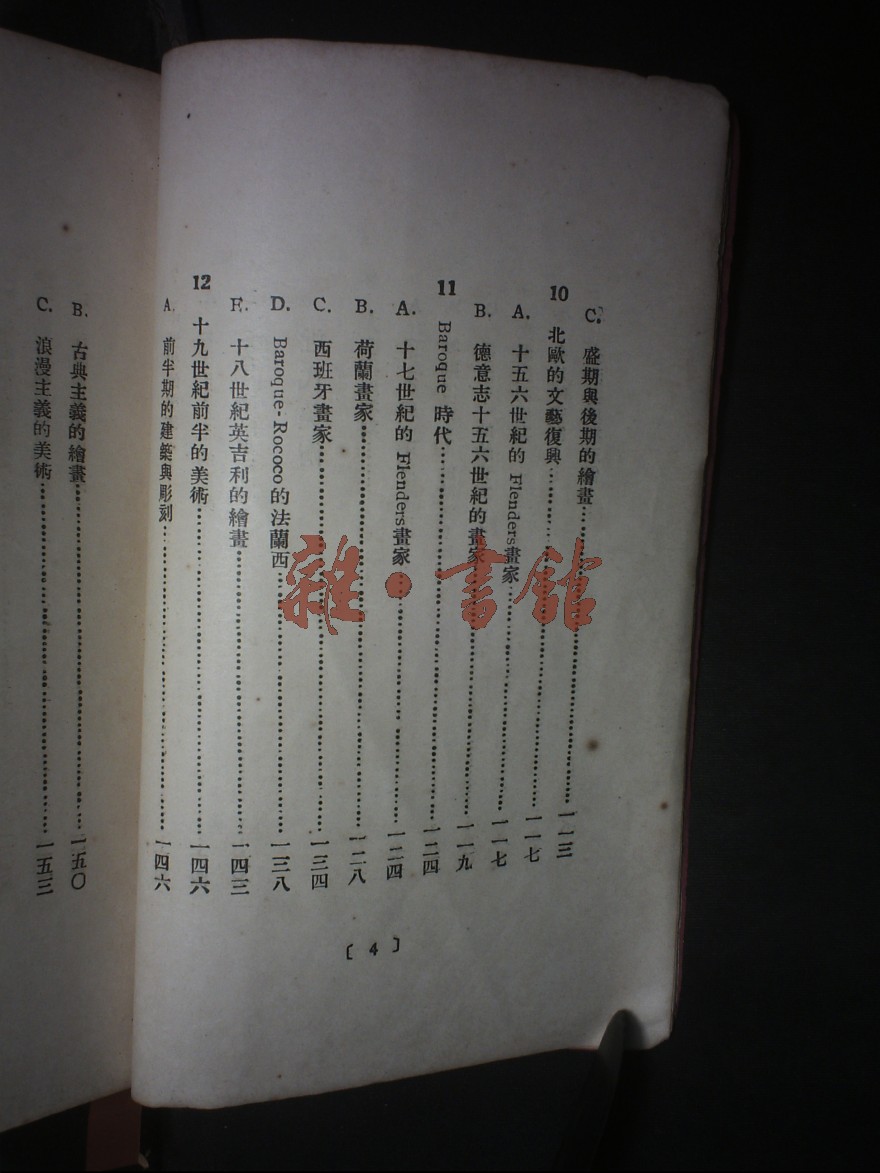 C. 盛期與後期的繪畫⋯⋯一一三
10 北歐的文藝復興⋯⋯一一七
A. 十五六世紀的 Flenders畫家⋯⋯一一七
B. 德意志十五六世紀的畫家⋯⋯一一九
11 Baroque 時代⋯⋯一二四
A. 十七世紀的 Flenders畫家⋯⋯一二四
B. 荷蘭畫家⋯⋯一二八
C. 西班牙畫家⋯⋯一三四
D. Baroque‧Rococo的法蘭西⋯⋯一三八
E. 十八世紀英吉利的繪畫⋯⋯一四三
12 十九世紀前半的美術⋯⋯一四六
A. 前半期的建築與彫刻⋯⋯一四六
〔4〕
B. 古典主義的繪畫⋯⋯一五〇
C. 浪漫主義的美術⋯⋯一五三
雜‧書館